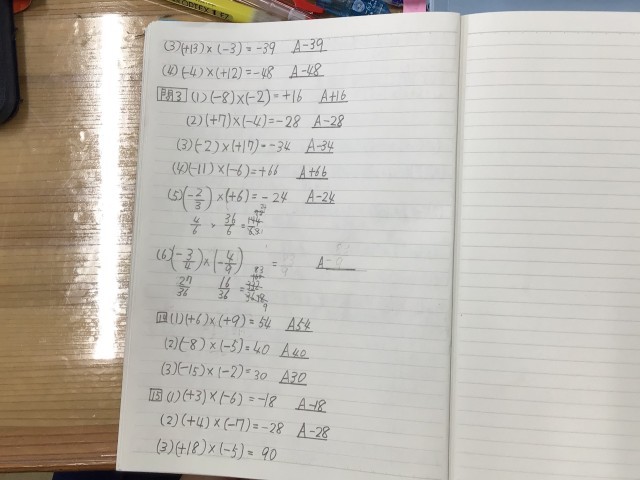 (3)(+13)×(-3)=-39 A-39
(4)(-4)×(+12)=-48 A-48
問3 (1)(-8)×(-2)=+16 A+16
(2)(+7)×(-4)=-28 A-28
(3)(-2)×(+17)=-34 A-34
(4)(-11)×(-6)=+66 A+66
(5)(-2/3)×(+6)=-24 A-24
4/6 × 36/6 =
(6)(-3/4)×(-4/9) = A-
27/36 16/36 =
(1)(+6)×(+9)=54 A54
(2)(-8)×(-5)=40 A40
(3)(-15)×(-2)=30 A30
15 (1)(+3)×(-6)=-18 A-18
(2)(+4)×(-7)=-28 A-28
(3)(+18)×(-5)=90